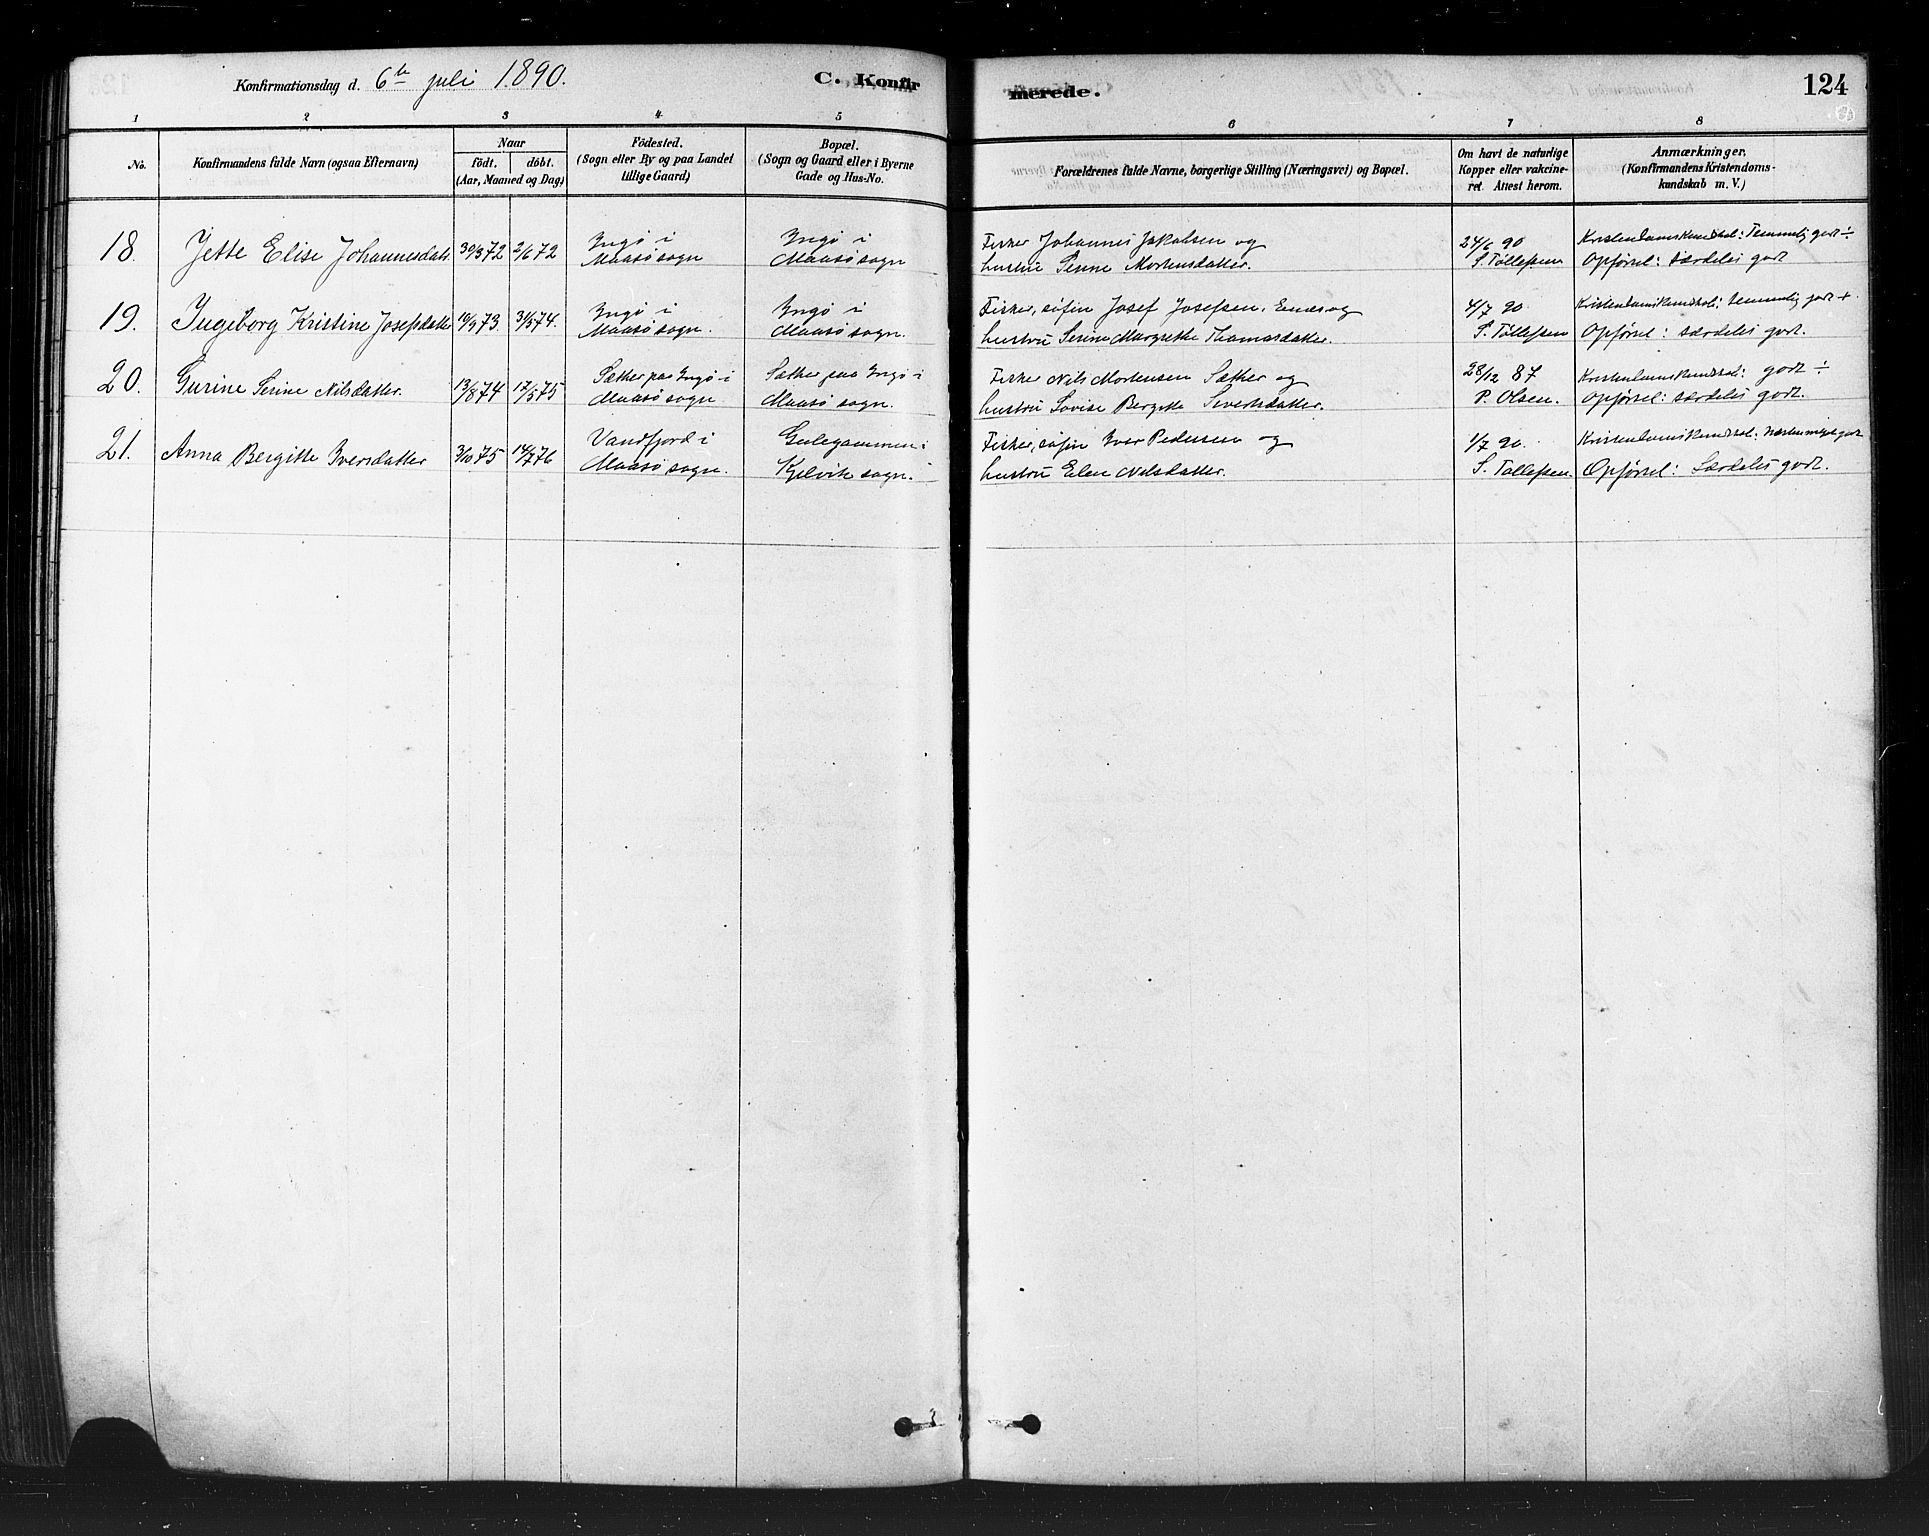 Konfirmationsdag d. 6te juli 1890.
C. Konfirmerede.
124
1 2 3 4 5 6 7 8
No.
Konfirmandens fulde Navn (ogsaa Efternavn)
Naar
födt. döbt.
(Aar, Maaned og Dag)
Födested.
(Sogn eller By og paa Landet
tillige Gaard)
Bopæl.
(Sogn og Gaard eller i Byerne
Gade og Hus-No.
Forældrenes fulde Navne, borgerlige Stilling (Næringsvei) og Bopæl.
Om havt de naturlige
Kopper eller vakcine-
ret. Attest herom.
Anmærkninger.
(Konfirmandens Kristendoms-
kundskab m. V.)
18. Jette Elise Johannesdatr 30/3 72 2/6 72
Ingø i
Maasø sogn
Ingø i
Maasø sogn
Fisker Johannes Jakobsen og
hustru Serine Mortensdatter.
24/6 90
S. Tollefsen
Kristendomskundskab: Temmelig godt ÷
Opførsel: særdeles godt
19. Ingeborg Kristine Josefsdatter 19/9 73. 31/5 74.
Ingø i
Maasø sogn.
Ingø i
Maasø sogn.
Fisker, søfin Josef Josefsen, og
hustru Serine Margrethe Thomasdatter.
4/7 90
S. Tollefsen
Kristendomskundskab: temmelig godt +
Opførsel: særdeles godt.
20. Gurine Serine Nilsdatter. 13/8 74 17/5 75
Sæther paa Ingø i
Maasø sogn
Sæther paa Ingø i
Maasø sogn.
Fisker Nils Mortensen Sæther og
hustru Lovise Bergitte Sivertsdatter.
28/12 87
P. Olsen.
Kristendomskundskab: godt ÷
Opførsel: særdeles godt.
21. Anna Bergitte Iversdatter 3/10 75 14/7 76
Vandfjord i
Maasø sogn.
Gulegammen i
Kjelvik sogn.
Fisker, søfin Iver Pedersen og
hustru Elen Nilsdatter.
1/7 90.
S. Tollefsen.
Kristendomskundskab: Næsten meget godt
Opførsel: Særdeles godt.